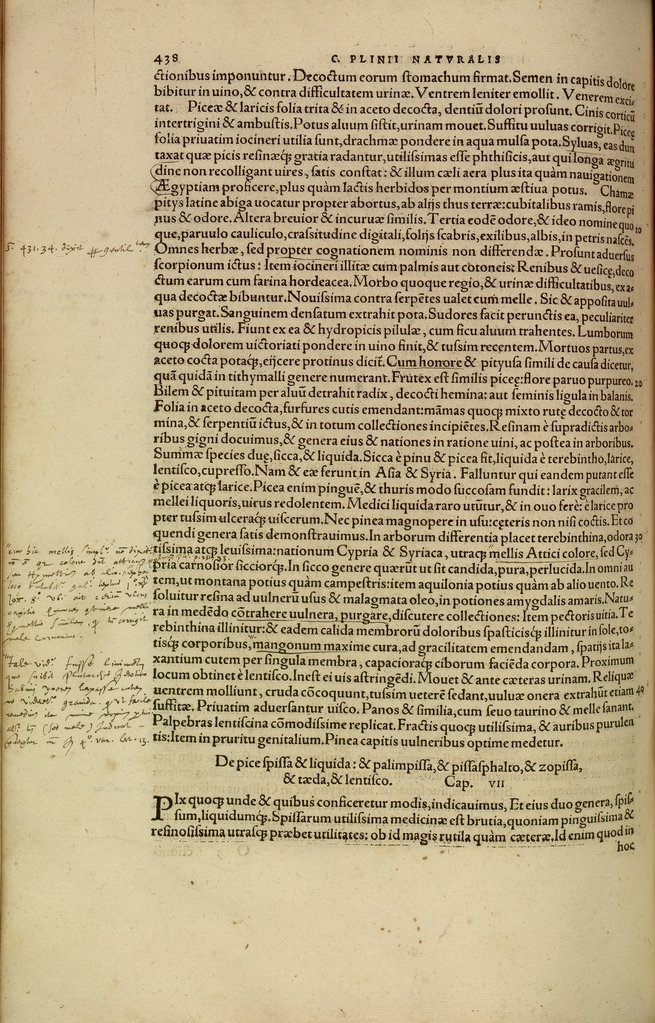 438 C. PLINII NATVRALIS
ctionibus imponuntur. Decoctum eorum stomachum firmat. Semen in capitis dolore
bibitur in uino, & contra difficultatem urinæ. Ventrem leniter emollit. Venerem exci⸗
tat. Piceæ & laricis folia trita & in aceto decocta, dentiū dolori prosunt. Cinis corticū
intertrigini & ambustis. Potus aluum sistit, urinam mouet. Suffitu uuluas corrigit. Piceę
folia priuatim iocineri utilia sunt, drachmæ pondere in aqua mulsa pota. Syluas, eas dun
taxat quæ picis resinæq́; gratia radantur, utilissimas esse phthisicis, aut qui longa ægritu
dine non recolligant uires, satis constat: & illum cæli aera plus ita quàm nauigationem
Ægyptiam proficere, plus quàm lactis herbidos per montium æstiua potus. Chamæ
pitys latine abiga uocatur propter abortus, ab alijs thus terræ: cubitalibus ramis, flore pi
nus & odore. Altera breuior & incuruæ similis. Tertia eodē odore, & ideo nomine quo 10
que, paruulo cauliculo, crassitudine digitali, folijs scabris, exilibus, albis, in petris nascēs.
Omnes herbæ, sed propter cognationem nominis non differendæ. Prosunt aduersus
scorpionum ictus: Item iocineri illitæ cum palmis aut cotoneis: Renibus & uesicę, deco
ctum earum cum farina hordeacea. Morbo quoque regio, & urinæ difficultatibus, ex a⸗
qua decoctæ bibuntur. Nouissima contra serpētes ualet cum melle. Sic & apposita uul⸗
uas purgat. Sanguinem densatum extrahit pota. Sudores facit perunctis ea, peculiariter
renibus utilis. Fiunt ex ea & hydropicis pilulæ, cum ficu aluum trahentes. Lumborum
quoq́; dolorem uictoriati pondere in uino finit, & tussim recentem. Mortuos partus, ex
aceto cocta potaq́;, eijcere protinus dicit̃. Cum honore & pityusa simili de causa dicetur,
quā quidā in tithymalli genere numerant. Frutex est similis piceę: flore paruo purpureo. 20
Bilem & pituitam per aluū detrahit radix, decocti hemina: aut seminis ligula in balanis.
Folia in aceto decocta, furfures cutis emendant: māmas quoq́; mixto rutę decocto & tor
mina, & serpentiū ictus, & in totum collectiones incipiētes. Resinam è supradictis arbo⸗
ribus gigni docuimus, & genera eius & nationes in ratione uini, ac postea in arboribus.
Summæ species duę, sicca, & liquida. Sicca è pinu & picea fit, liquida è terebintho, larice,
lentisco, cupresso. Nam & eæ ferunt in Asia & Syria. Falluntur qui eandem putant esse
è picea atq́; larice. Picea enim pinguē, & thuris modo succosam fundit: larix gracilem, ac
mellei liquoris, uirus redolentem. Medici liquida raro utūtur, & in ouo ferè: è larice pro
pter tussim ulceraq́; uiscerum. Nec pinea magnopere in usu: ceteris non nisi coctis. Et co
quendi genera satis demonstrauimus. In arborum differentia placet terebinthina, odora 30
tissima atq́; leuissima: nationum Cypria & Syriaca, utraq́; mellis Attici colore, sed Cy⸗
pria carnosior sicciorq́;. In sicco genere quærūt ut sit candida, pura, perlucida. In omni au
tem, ut montana potius quàm campestris: item aquilonia potius quàm ab alio uento. Re
soluitur resina ad uulnerū usus & malagmata oleo, in potiones amygdalis amaris. Natu⸗
ra in medēdo cōtrahere uulnera, purgare, discutere collectiones: Item pectoris uitia. Te
rebinthina illinitur: & eadem calida membrorū doloribus spasticisq́; illinitur in sole, to⸗
tisq́; corporibus, mangonum maxime cura, ad gracilitatem emendandam, spatijs ita la⸗
xantium cutem per singula membra, capacioraq́; ciborum faciēda corpora. Proximum
locum obtinet è lentisco. Inest ei uis astringēdi. Mouet & ante cæteras urinam. Reliquæ
uentrem molliunt, cruda cōcoquunt, tussim ueterē sedant, uuluæ onera extrahūt etiam 40
suffitæ. Priuatim aduersantur uisco. Panos & similia, cum seuo taurino & melle sanant.
Palpebras lentiscina cōmodissime replicat. Fractis quoq́; utilissima, & auribus purulen
tis: Item in pruritu genitalium. Pinea capitis uulneribus optime medetur.
De pice spissa & liquida: & palimpissa, & pissasphalto, & zopissa,
& tæda, & lentisco. Cap. VII
PIx quoq́; unde & quibus conficeretur modis, indicauimus, Et eius duo genera, spis⸗
sum, liquidumq́;. Spissarum utilissima medicinæ est brutia, quoniam pinguissima &
resinosissima utrasq́; præbet utilitates: ob id magis rutila quàm cæteræ. Id enim quod in
hoc